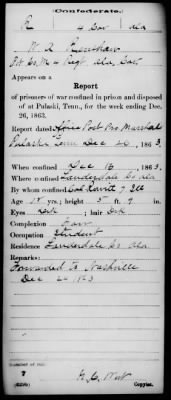 Confederate.
R 4 Cav Ala
W. A.
Appears on a
Report
of prisoners of war confined in prison and disposed
of at Pulaski, Tenn., for the week ending Dec.
26, 1863.
Report dated Office Post Pro Marshal
Pulaski Tenn Dec 26, 1863.
When confined Dec 16, 1863.
Where confined Lauderdale Co Ala
By whom confined Col 7 Ill
Age 18 yrs; height 5 ft. 9 in.
Eyes Dark; hair Drk
Complexion Fair
Occupation Student
Residence Lauderdale Co Ala
Remarks:
Forwarded To Nashville
Dec 1863
Number of roll:
7
Copyist.